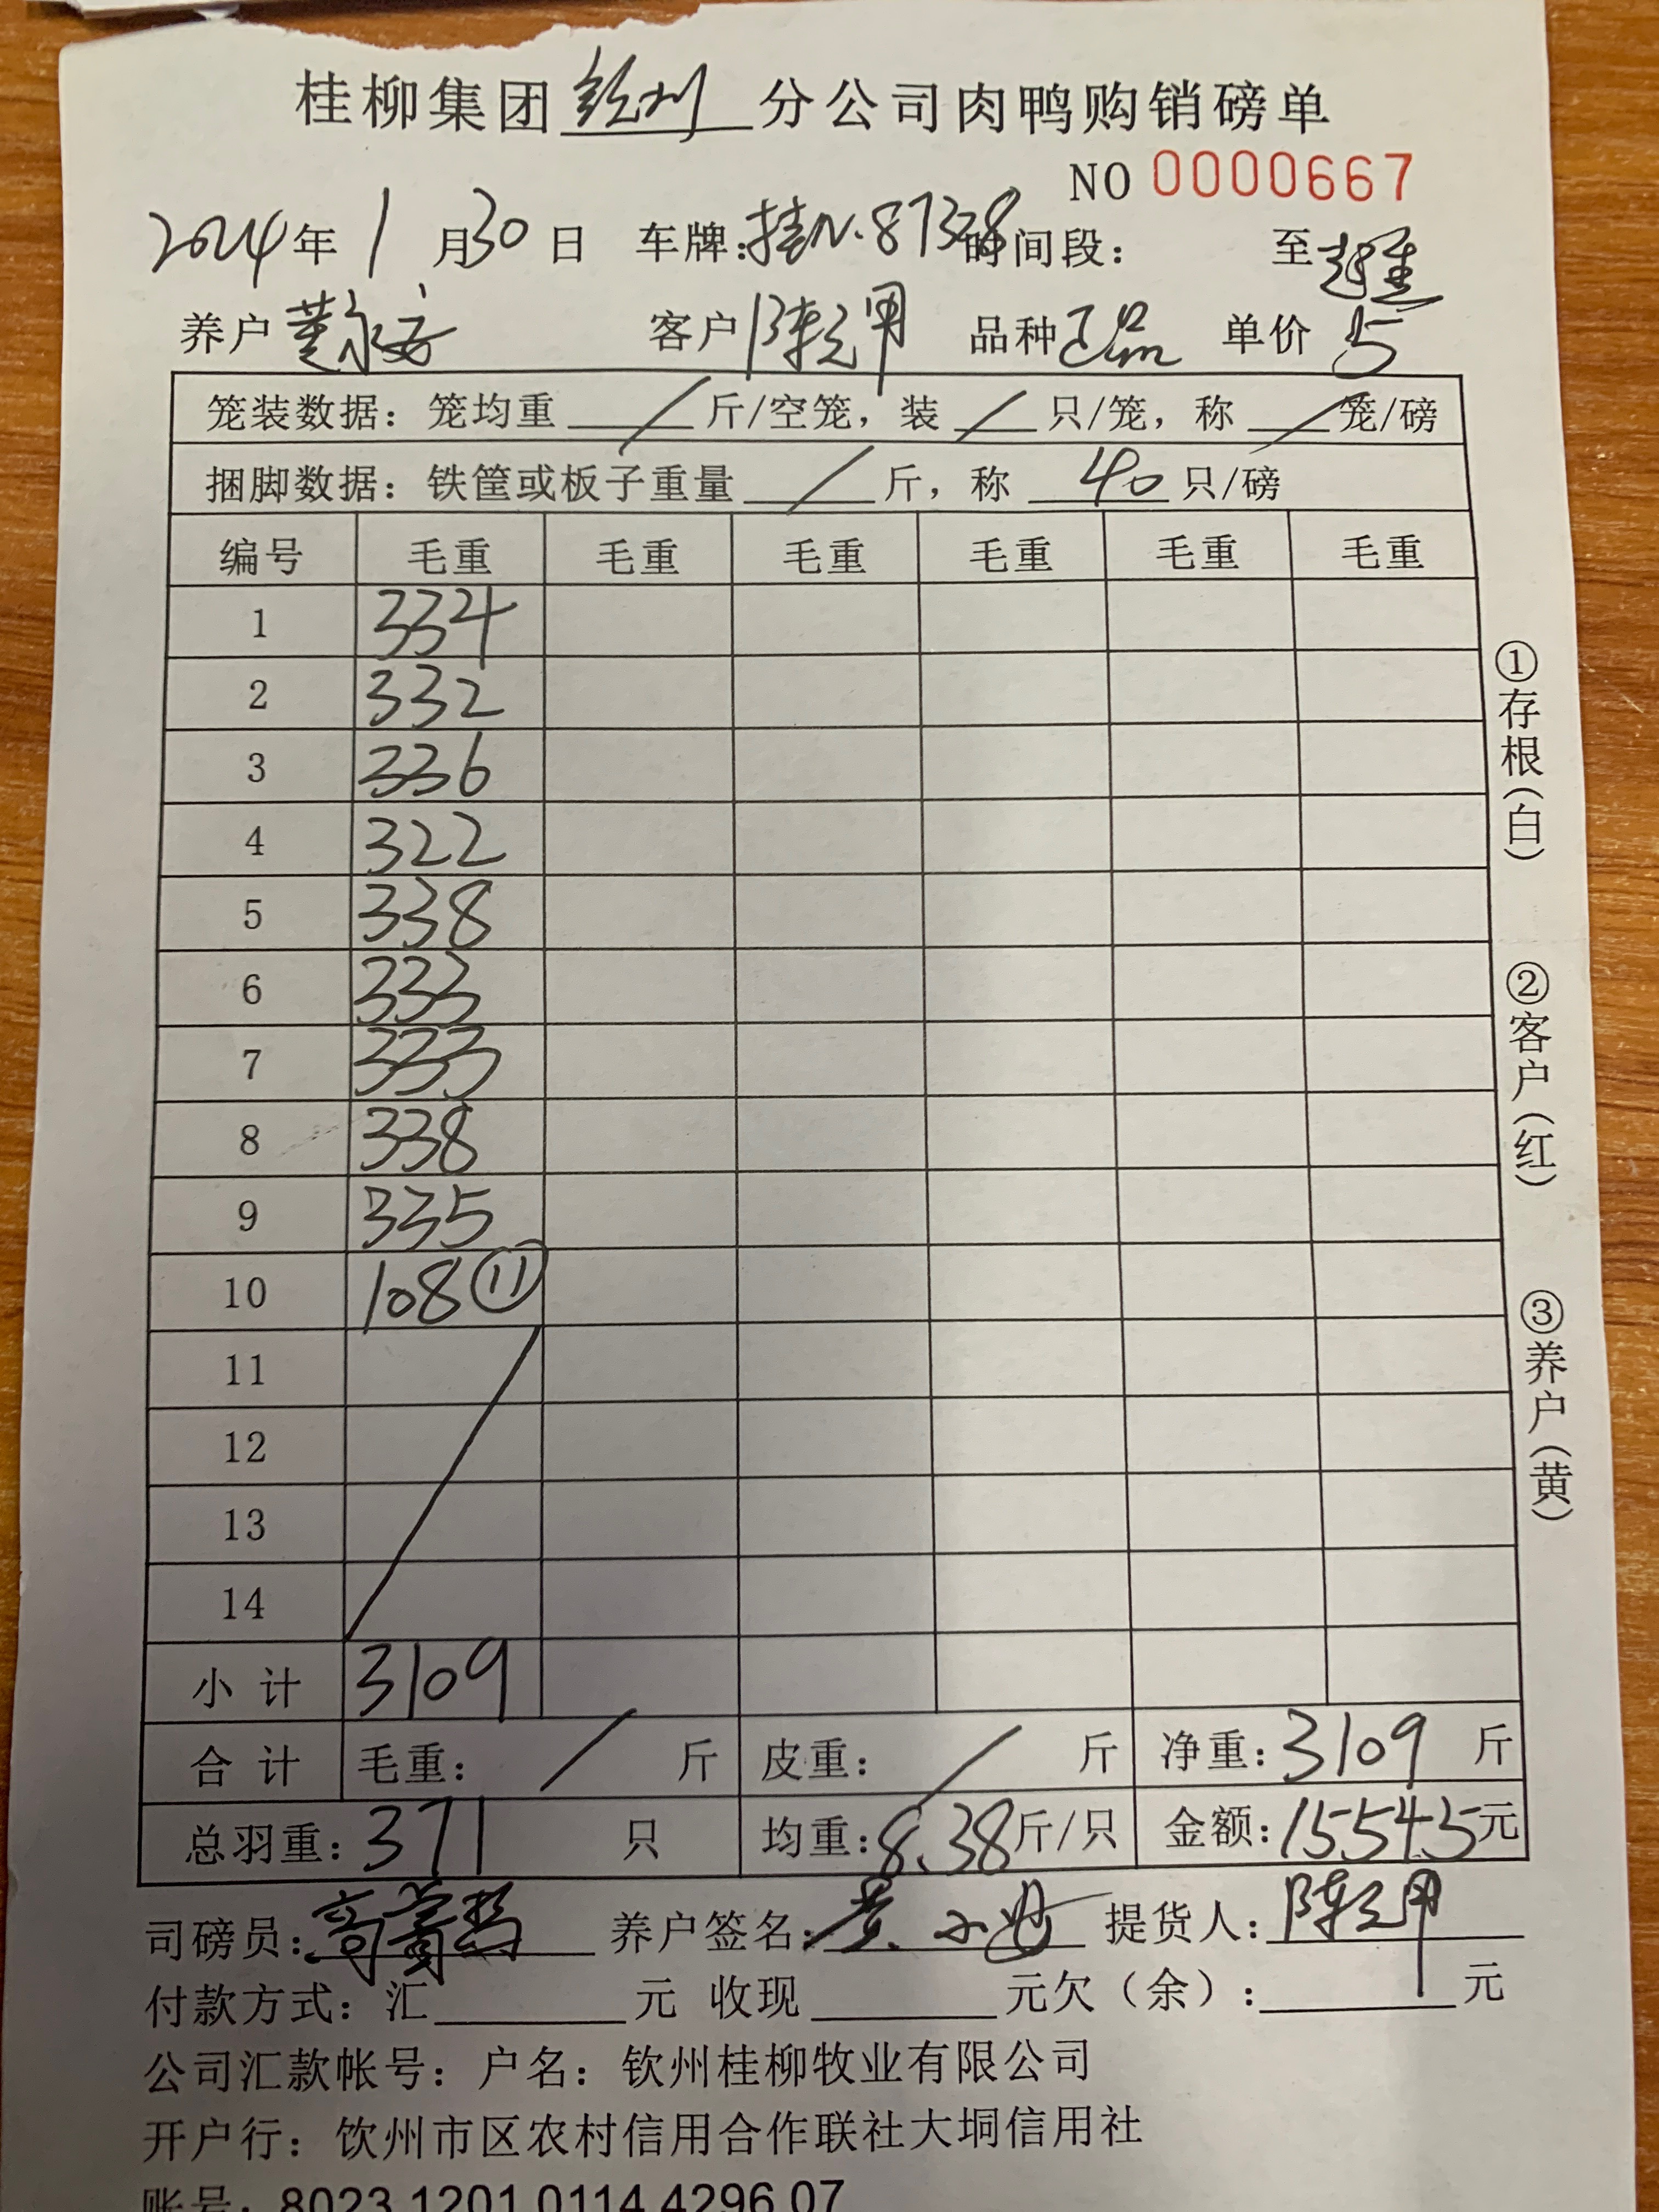 桂柳集团钦州分公司肉鸭购销磅单
NO 0000667
2024年 1 月30 日 车牌:桂N·87328 时间段: 至
养户 黄永安 客户 陈元甲 品种 正品 单价 5
笼装数据: 笼均重 / 斤/空笼, 装 / 只/笼, 称 / 笼/磅
捆脚数据: 铁筐或板子重量 / 斤, 称 40 只/磅
编号 毛重 毛重 毛重 毛重 毛重 毛重
1 334
2 332
3 336
4 322
5 338
6 333
7 333
8 338
9 335
10 108 ⑪
11
12
13
14
小 计 3109
合 计 毛重: / 斤 皮重: / 斤 净重: 3109 斤
总羽重: 371 只 均重: 8.38斤/只 金额: 15545元
司磅员: 养户签名: 黄小 提货人: 陈元甲
付款方式: 汇 元 收现 元欠（余）: 元
公司汇款帐号: 户名: 钦州桂柳牧业有限公司
开户行: 饮州市区农村信用合作联社大垌信用社
账号: 8023 1201 0114 4296 07
①存根(白)
②客户(红)
③养户(黄)